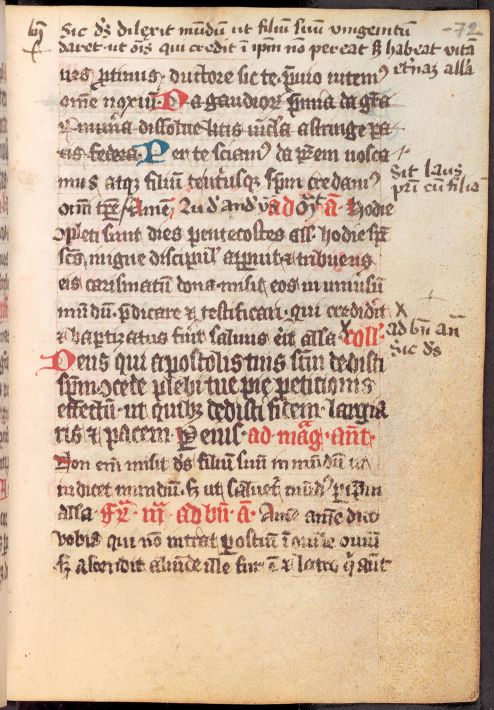 Sic ds dilexit mūdū ut filiū suū unigenitū
72
daret · ut ōīs qui credit ī ipm nō pereat sz habeat vitā
eternaz alla
urs ptinus · ductore sic te · puio vitem9
om̄e noxiū · Da gaudior pmia da gr̄a
munia dissolue litis vīcla astringe pa
cis federa · Per te sciam9 da prēm nosca
mus atqz filiū te utriusqz spm credam9
om̄i tpre Amen
ad · ā · Hodie
Sit laus
pri cū filio
9pleti sunt dies pentecostes all · hodie sp
scs, in igne discipul' apparuit & tribuens
eis carismatū dona · misit eos in uniuersū
mūdū · p̄dicare & testificari · qui crediderit
& baptizatus fuerit saluus erit alla coll'
ad bn̄ an̄
Sic ds
Deus qui apostolis tuis scm dedisti
spm 9cede plebi tue pie petitionis
effectū · ut quibz dedisti fidem · largia
ris & pacem Per eius · ad mag · ant ·
Non eni misit ds filiū suū in mūdū ut
iudicet mundū · sz ut saluet mūd9 p ipm
alla · fr · iii · ad bn̄ · ā · Amē amē dico
vobis qui nō intrat p ostiū ī ouile ouiū
sz ascendit aliunde ille fur ē & latro